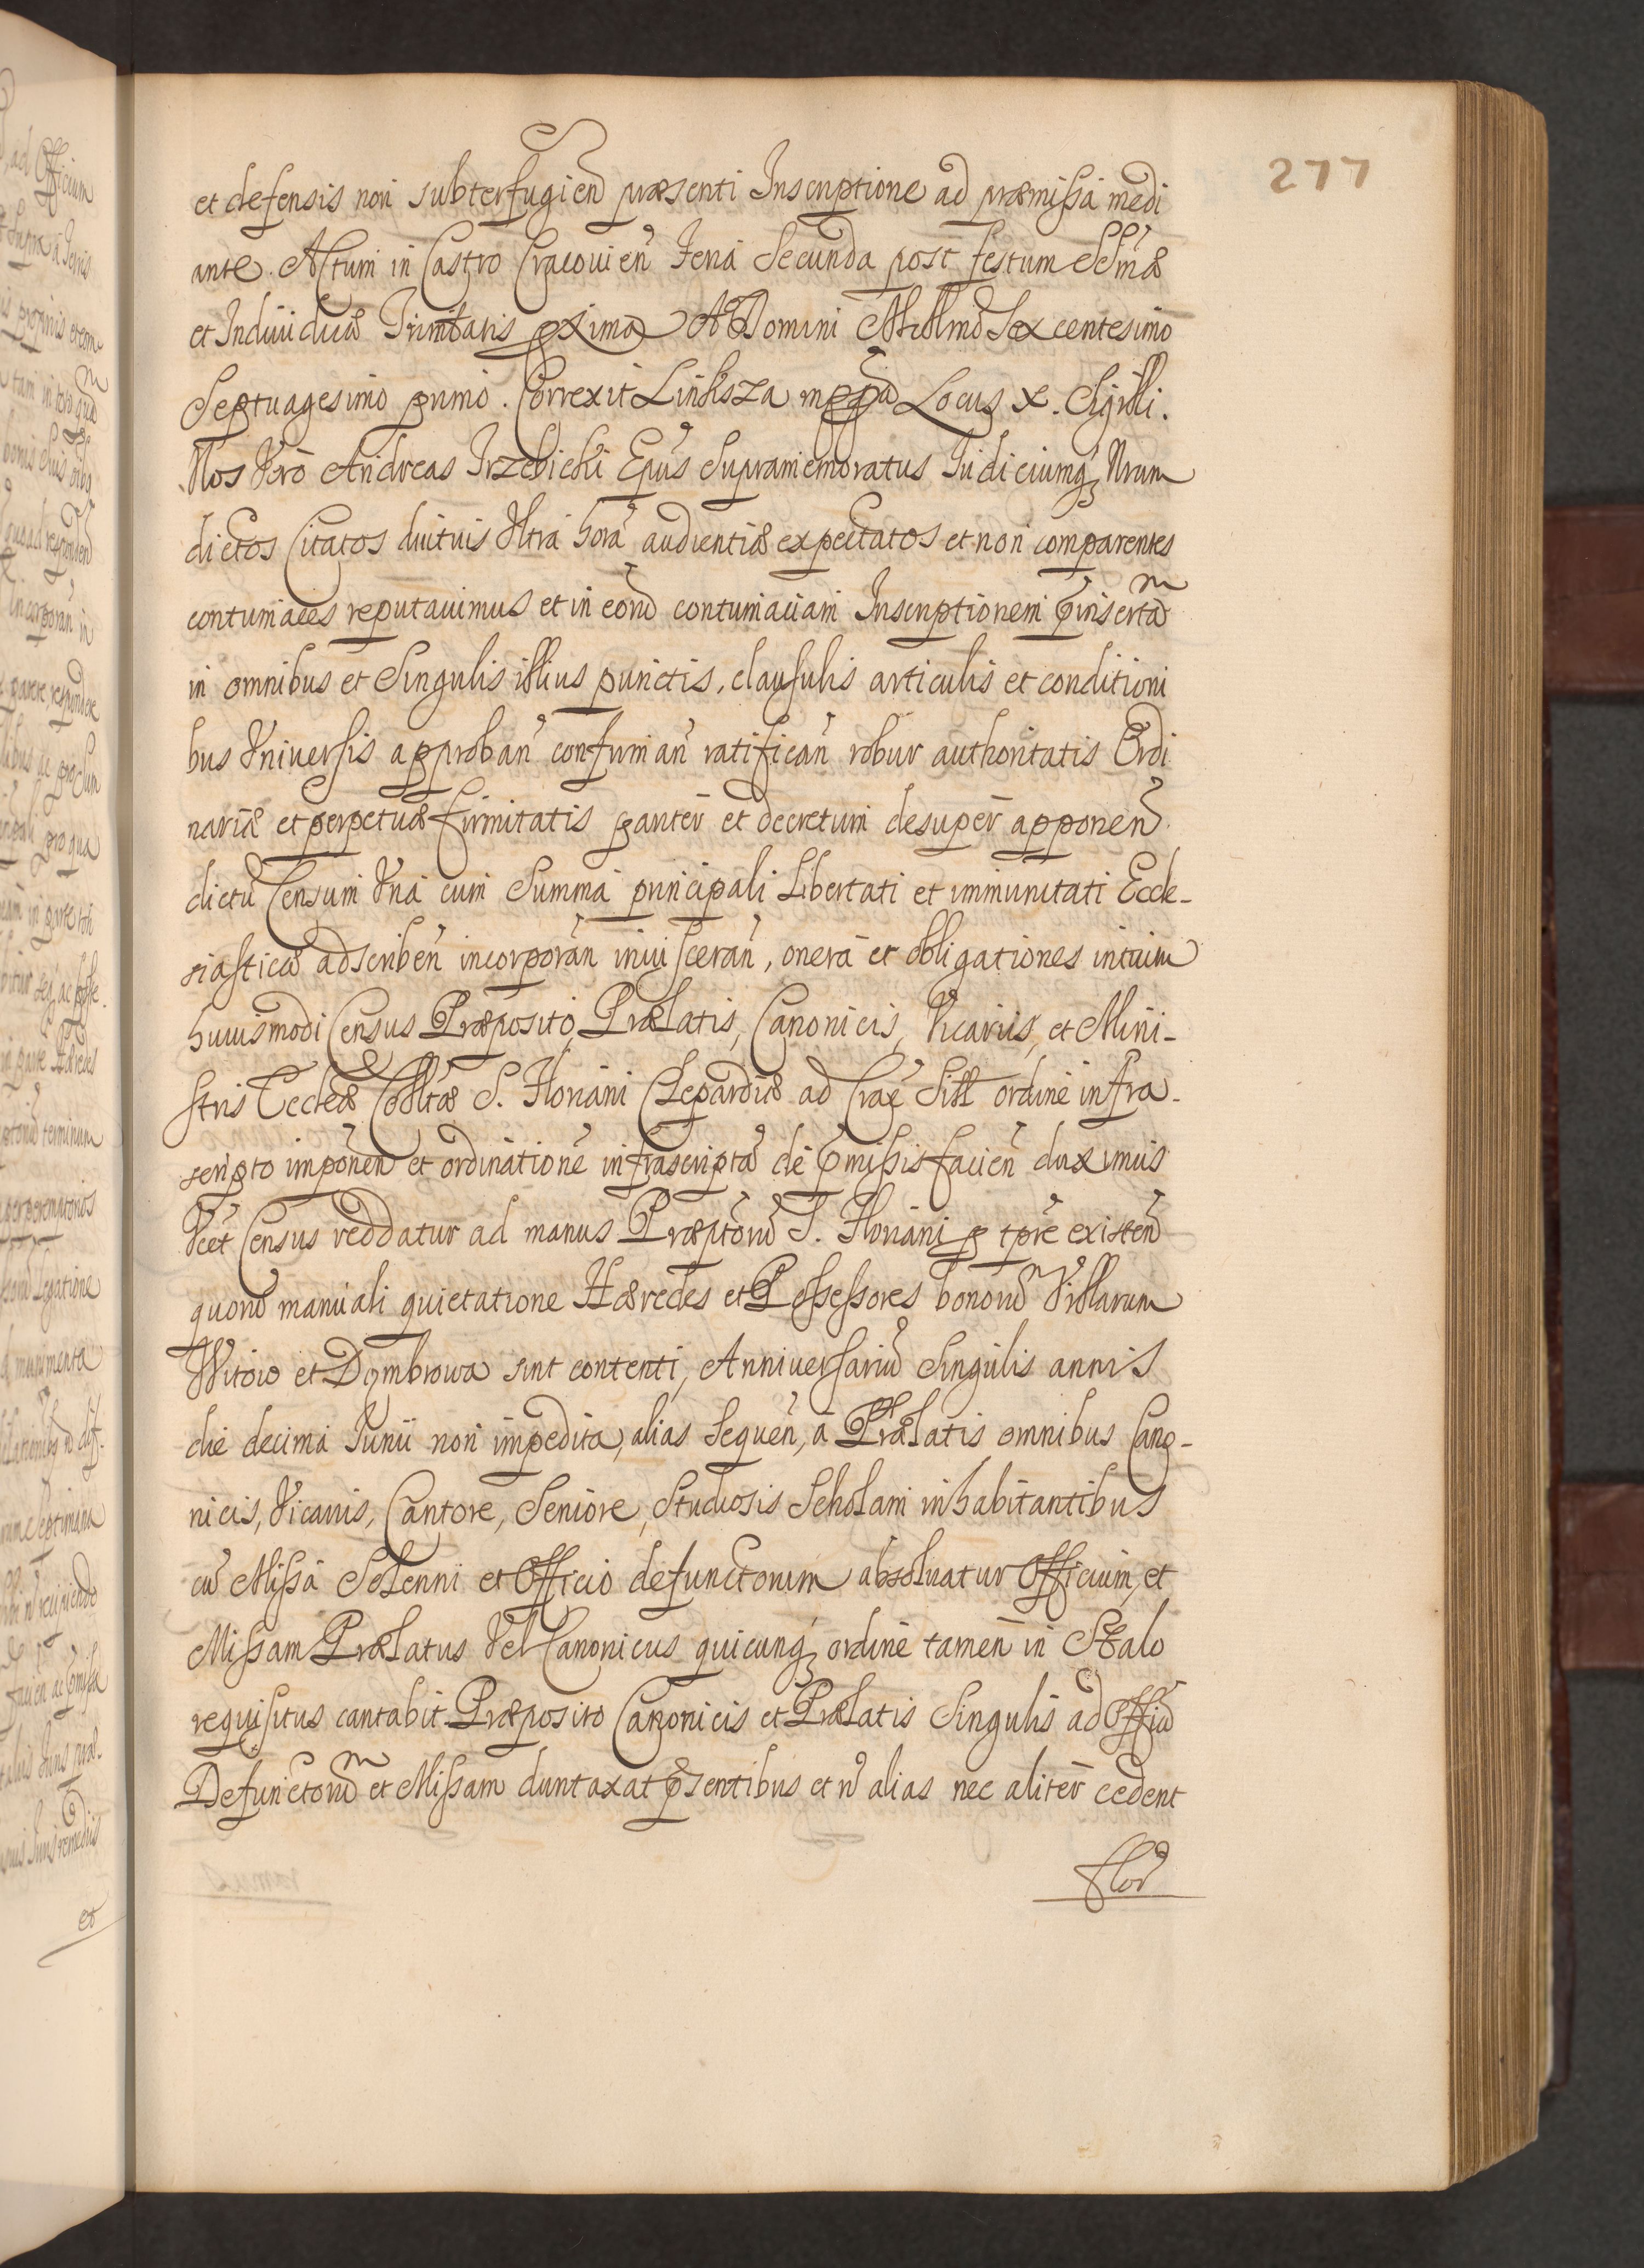 277
et defensis non subterfugien̄ præsenti Inscriptione ad præmissa medi
ante. Actum in Castro Cracouien̄ Feria Secunda post festum SSmæ
et Indiuiduæ Trinitatis pxima A Domini Millmo Sexcentesimo
Septuagesimo primo. Correxit Linksza mppa Locus x. Sigilli.
Nos Vero Andreas Trzebicki Epūs Supramemoratus Iudiciumq; Nrum
dictos Citatos diutius Vltra horā audientiæ expectatos et non comparentes
contumaces reputauimus et in eorū contumaciam Inscriptionem p̄insertam
in omnibus et Singulis illius punctis, clausulis articulis et conditioni
bus Vniuersis approban̄ confirman̄ ratifican̄ robur authoritatis Ordi
nariæ et perpetuæ firmitatis panter et decretum desuper apponen̄
dictū Censum Vna cum Summa principali Libertati et immunitati Eccle-
siasticæ adscriben̄ incorporan̄ inuisceran̄, onera et obligationes intuitu
huiusmodi Census Præposito, Prælatis, Canonicis, Vicariis, et Mini-
stris Eccleæ Colltæ S. Floriani Clepardiæ ad Crac̄ Sitt ordine infra-
scripto imponen̄ et ordinationē infrascriptā de p̄missis facien̄ duximus
Vcēt Census reddatur ad manus Præptorū S. Floriani p tp̄re existen̄
quorū manuali quietatione Hæredes et Possessores bonorū Villarum
Witow et Dombrowa sint contenti, Anniuersariū Singulis annis
die decima Iunii non impedita, alias Sequen̄, a Prælatis omnibus Cano-
nicis, Vicariis, Cantore, Seniore, Studiosis Scholam inhabitantibus
cū Missa Solenni et Officio defunctorum absoluatur Officium, et
Missam Prælatus Vel Canonicus quicunq; ordine tamen in Stalo
requisitus cantabit Præposito Canonicis et Prælatis Singulis ad Officiū
Defunctorum et Missam duntaxat p̄sentibus et n̄ alias nec aliter cedent
Flor